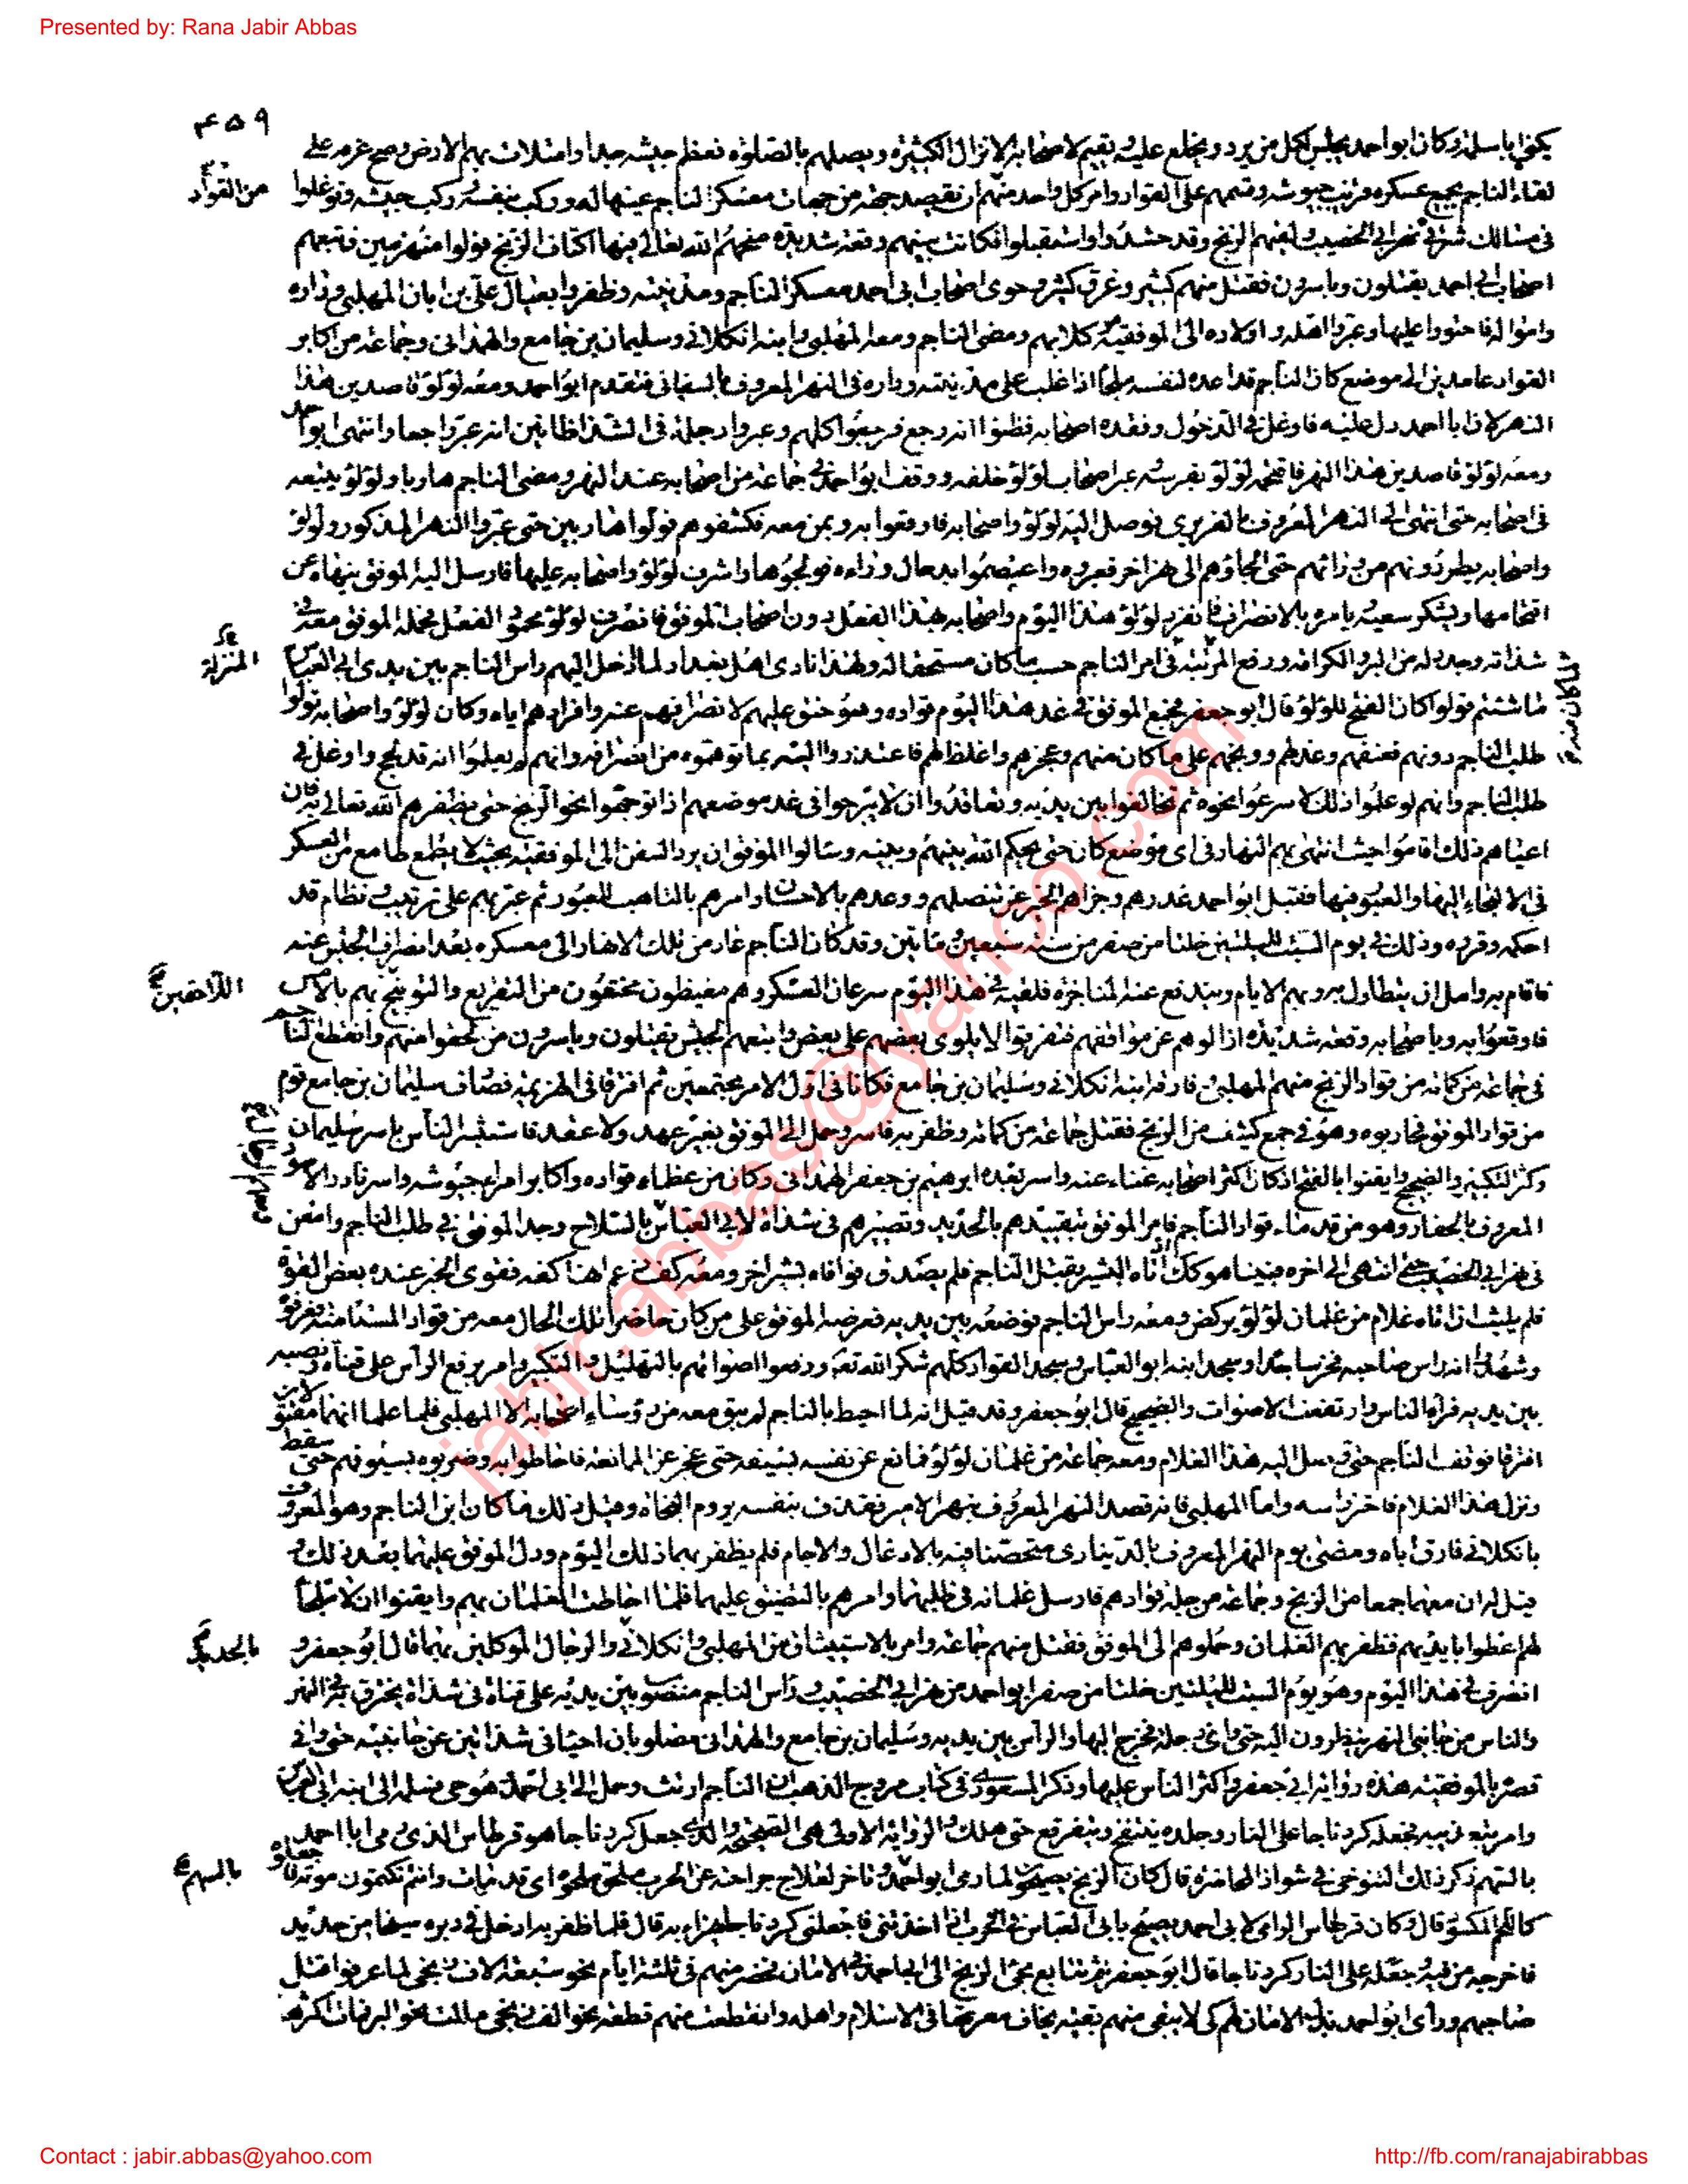 Presented by: Rana Jabir Abbas
٤٥٩
يكنى اباسلمة وكان ابو احمد يجلس لكل من يرد ويخلع عليه ويقيم لاصحابه الانزال الكثيرة ويصلهم بالصلوة فعظم جيشه جدا وامتلات بهم الارض وصح عزمه على
لقاء الناجم بجميع عسكره فرتب جيوشه وقسمهم على القواد وامر كل واحد منهم ان يقصد جهة من جهات معسكر الناجم عينها له وركب بنفسه وركب جيشه وتوغلوا
من القواد
فى مسالك شرقى نهر ابى الخصيب ولقيهم الزنج وقد حشدوا واستقبلوا فكانت بينهم وقعة شديدة منحهم الله تعالى فيها اكتاف الزنج فولوا منهزمين فتبعهم
اصحاب ابى احمد يقتلون وياسرون فقتل منهم كثير وغرق كثير وحوى اصحاب ابى احمد معسكر الناجم ومدينته وظفروا بعيال على بن ابان المهلبى وداره
وامواله فاحتووا عليها وعبروا اهله واولاده الى الموفقية كلابهم ومضى الناجم ومعه المهلبى وابنه انكلانى وسليمان بن جامع والهمدانى وجماعة من اكابر
القواد عامدين الى موضع كان الناجم قد اعده لنفسه ملجأ اذا غلب على مدينته وداره فى النهر المعروف بالسفيانى فتقدم ابو احمد ومعه لؤلؤ قاصدين هذا
النهر لان ابا احمد دل عليه فاوغل فى الدخول وفقده اصحابه فظنوا انه رجع فرجعوا كلهم وعبروا دجلة فى الشذا ظانين انه عبر راجعا وانتهى ابو احمد
ومعه لؤلؤ قاصدين هذا النهر فاقتحمه لؤلؤ بفرسه وعبر اصحاب لؤلؤ خلفه ووقف ابو احمد فى جماعة من اصحابه عند النهر ومضى الناجم هاربا ولؤلؤ يتبعه
فى اصحابه حتى انتهى الى النهر المعروف بالقريرى فوصل اليه لؤلؤ واصحابه فاوقعوا به وبمن معه فكشفوهم فولوا هاربين حتى عبروا النهر المذكور ولؤلؤ
واصحابه يطردونهم من ورائهم حتى الجاؤهم الى نهر اخر فعبروه واعتصموا بدحال وراءه فولجوها واشرف لؤلؤ واصحابه عليها فارسل اليه الموفق ينهاه عن
اقتحامها ويشكر سعيه ويامره بالانصراف فانفرد لؤلؤ هذا اليوم واصحابه بهذا الفعل دون اصحاب الموفق فانصرف لؤلؤ محمود الفعل فحمله الموفق معه فى
شذاته وجدد له من البر والكرامة ورفع المرتبة فى امر الناجم حسب ما كان مستحقا له ولهذا نادى اهل بغداد لما ادخل اليهم راس الناجم بين يدى ابى العباس
المنزلة
لما كان منه
ما شئتم قولوا كان الفتح للؤلؤ قال ابو جعفر فجمع الموفق فى غد هذا اليوم قواده وهو حنق عليهم لانصرافهم عنه وافرادهم اياه وكان لؤلؤ واصحابه تولوا
طلب الناجم دونهم فعنفهم وعذلهم ووبخهم على ما كان منهم وعجزهم واغلظ لهم فاعتذروا اليه بما توهموه من انصرافه وانهم لم يعلموا انه قد لج واوغل فى
طلب الناجم وانهم لو علموا ذلك لاسرعوا نحوه ثم تحالفوا بين يديه وتعاقدوا ان لا يبرحوا فى غد موضعهم اذا توجهوا نحو الزنج حتى يظفرهم الله تعالى به فان
اعياهم ذلك اقاموا حيث انتهى بهم النهار فى اى موضع كان حتى يحكم الله بينهم وبينه وسالوا الموفق ان يرد السفن الى الموفقية بحيث لا يطمع طامع من العسكر
فى الالتجاء اليها والعبور فيها فقبل ابو احمد عذرهم وجزاهم الخير عن تنصلهم ووعدهم بالاحسان وامرهم بالتاهب للعبور ثم عبر بهم على ترتيب ونظام قد
احكمه وقرره وذلك فى يوم السبت لليلتين خلتا من صفر من سنة سبعين ومائتين وقد كان الناجم عاد من تلك الانهار الى معسكره بعد انصراف الجيش عنه
فاقام به وامل ان يتطاول به وبهم الايام ويندفع عنه المناجزة فلقيه فى هذا اليوم سرعان العسكر وهم مغيظون محنقون من التقريع والتوبيخ بهم بالامس
اللاحقين
فاوقعوا به وباصحابه وقعة شديدة ازالوهم عن مواقفهم فتفرقوا لا يلوى بعضهم على بعض واتبعهم الجيش يقتلون وياسرون من لحقوا منهم وانقطع الناجم
فى جماعة من كماته من قواد الزنج منهم المهلبى وفارقه ابنه انكلانى وسليمان بن جامع فكانا فى اول الامر مجتمعين ثم افترقا فى الهزيمة فصادف سليمان بن جامع قوم
من قواد الموفق فحاربوه وهو فى جمع كثيف من الزنج فقتل جماعة من كماته وظفر به فاسر وحمل الى الموفق بغير عهد ولا عقد فاستبشر الناس باسر سليمان
وكثر التكبير والضجيج وايقنوا بالفتح اذ كان اكثر اصحابه غناء عنه واسر بعده ابرهيم بن جعفر الهمدانى وكان من عظماء قواده واكابر امراء جيوشه واسر نادر الاسود
المعروف بالحفار وهو من قدماء قواد الناجم فامر الموفق بتقييدهم بالحديد وتصييرهم فى شذاة لابى العباس بالسلاح وجد الموفق فى طلب الناجم وامعن
فى نهر ابى الخصيب حتى انتهى الى اخره فبينما هو كذلك اتاه البشير بقتل الناجم فلم يصدق فوافاه بشير اخر ومعه كف زعم انها كفه فقوى الخبر عنده بعض القوة
فلم يلبث ان اتاه غلام من غلمان لؤلؤ يركض ومعه راس الناجم فوضعه بين يديه فعرضه الموفق على من كان حاضرا تلك الحال معه من قواد المستامنة فعرفوه
وشهدوا انه راس صاحبه فخر ساجدا وسجد ابنه ابو العباس وسجد القواد كلهم شكرا لله تعالى ورفعوا اصواتهم بالتهليل والتكبير وامر برفع الراس على قناة ونصبه
بين يديه فراه الناس وارتفعت الاصوات والضجيج قال ابو جعفر وقد قيل انه لما احيط بالناجم لم يبق معه من رؤساء اصحابه الا المهلبى فلما علما انهما مقتولان
افترقا فوقف الناجم حتى وصل اليه هذا الغلام ومعه جماعة من غلمان لؤلؤ فمانع عن نفسه بسيفه حتى عجز عن الممانعة فاحاطوا به وضربوه بسيوفهم حتى سقط
ونزل هذا الغلام فاحتز راسه واما المهلبى فانه قصد النهر المعروف بنهر الامير فقذف بنفسه يروم النجاة وقبل ذلك ما كان ابن الناجم وهو المعروف
بانكلانى فارق اباه ومضى يوم النهر المعروف بالدينارى متحصنا فيه بالادغال والاجام فلم يظفر بهما ذلك اليوم ودل الموفق عليهما بعد ذلك و
قيل له ان معهما جمعا من الزنج وجماعة من جلة قوادهم فارسل غلمانه فى طلبهما وامرهم بالتضييق عليهما فلما احاطت الغلمان بهم وايقنوا ان لا ملجأ
لهم اعطوا بايديهم فظفر بهم الغلمان وحملوهم الى الموفق فقتل منهم جماعة وامر بالاستيثاق من المهلبى وانكلانى والرجال الموكلين بهما قال ابو جعفر و
بالحديد
انصرف فى هذا اليوم وهو يوم السبت لليلتين خلتا من صفر ابو احمد من نهر ابى الخصيب وراس الناجم منصوب بين يديه على قناة فى شذاة يخترق بها النهر
والناس من جانبى النهر ينظرون اليه حتى وافى دجلة فخرج اليها والراس بين يديه وسليمان بن جامع والهمدانى مصلوبان احياء فى شذاتين عن جانبيه حتى وافى
قصره بالموفقية هذه رواية ابى جعفر واكثر الناس عليها وذكر المسعودى فى كتاب مروج الذهب ان الناجم ارتث وحمل الى ابى احمد وهو حى فسلمه الى ابنه ابى العباس
وامر بتعذيبه فجعله كردناجا على النار وجلده ينتفخ ويتفرقع حتى هلك والرواية الاولى هى الصحيحة والذى جعل كردناجا هو قرطاس الذى رمى ابا احمد
بالسهم ذكر ذلك التنوخى فى نشوار المحاضرة قال كان الزنج يصيحون لما رمى ابو احمد وتاخر لعلاج جراحته عن الحرب ملحوه ملحوه اى قد مات وانتم تكتمون موته فاجعلوه
بالسهم
كاللحم المكسود قال وكان قرطاس الرامى لابى احمد يصيح بابى العباس فى الحرب اذا اخذتنى فاجعلنى كردناجا يهزاء به قال فلما ظفر به ادخل فى دبره سيخا من حديد
فاخرجه من فيه وجعله على النار كردناجا قال ابو جعفر ثم تتابع مجئ الزنج الى ابى احمد فى الامان فحضر منهم فى ثلثة ايام نحو سبعة الاف زنجى لما عرفوا قتل
صاحبهم وراى ابو احمد بذل الامان لهم كى لا يبقى منهم بقية يخاف معرتها فى الاسلام واهله وانقطعت منهم قطعة نحو الف زنجى مالت نحو البر فمات اكثرها
jabir.abbas@yahoo.com
Contact : jabir.abbas@yahoo.com
http://fb.com/ranajabirabbas